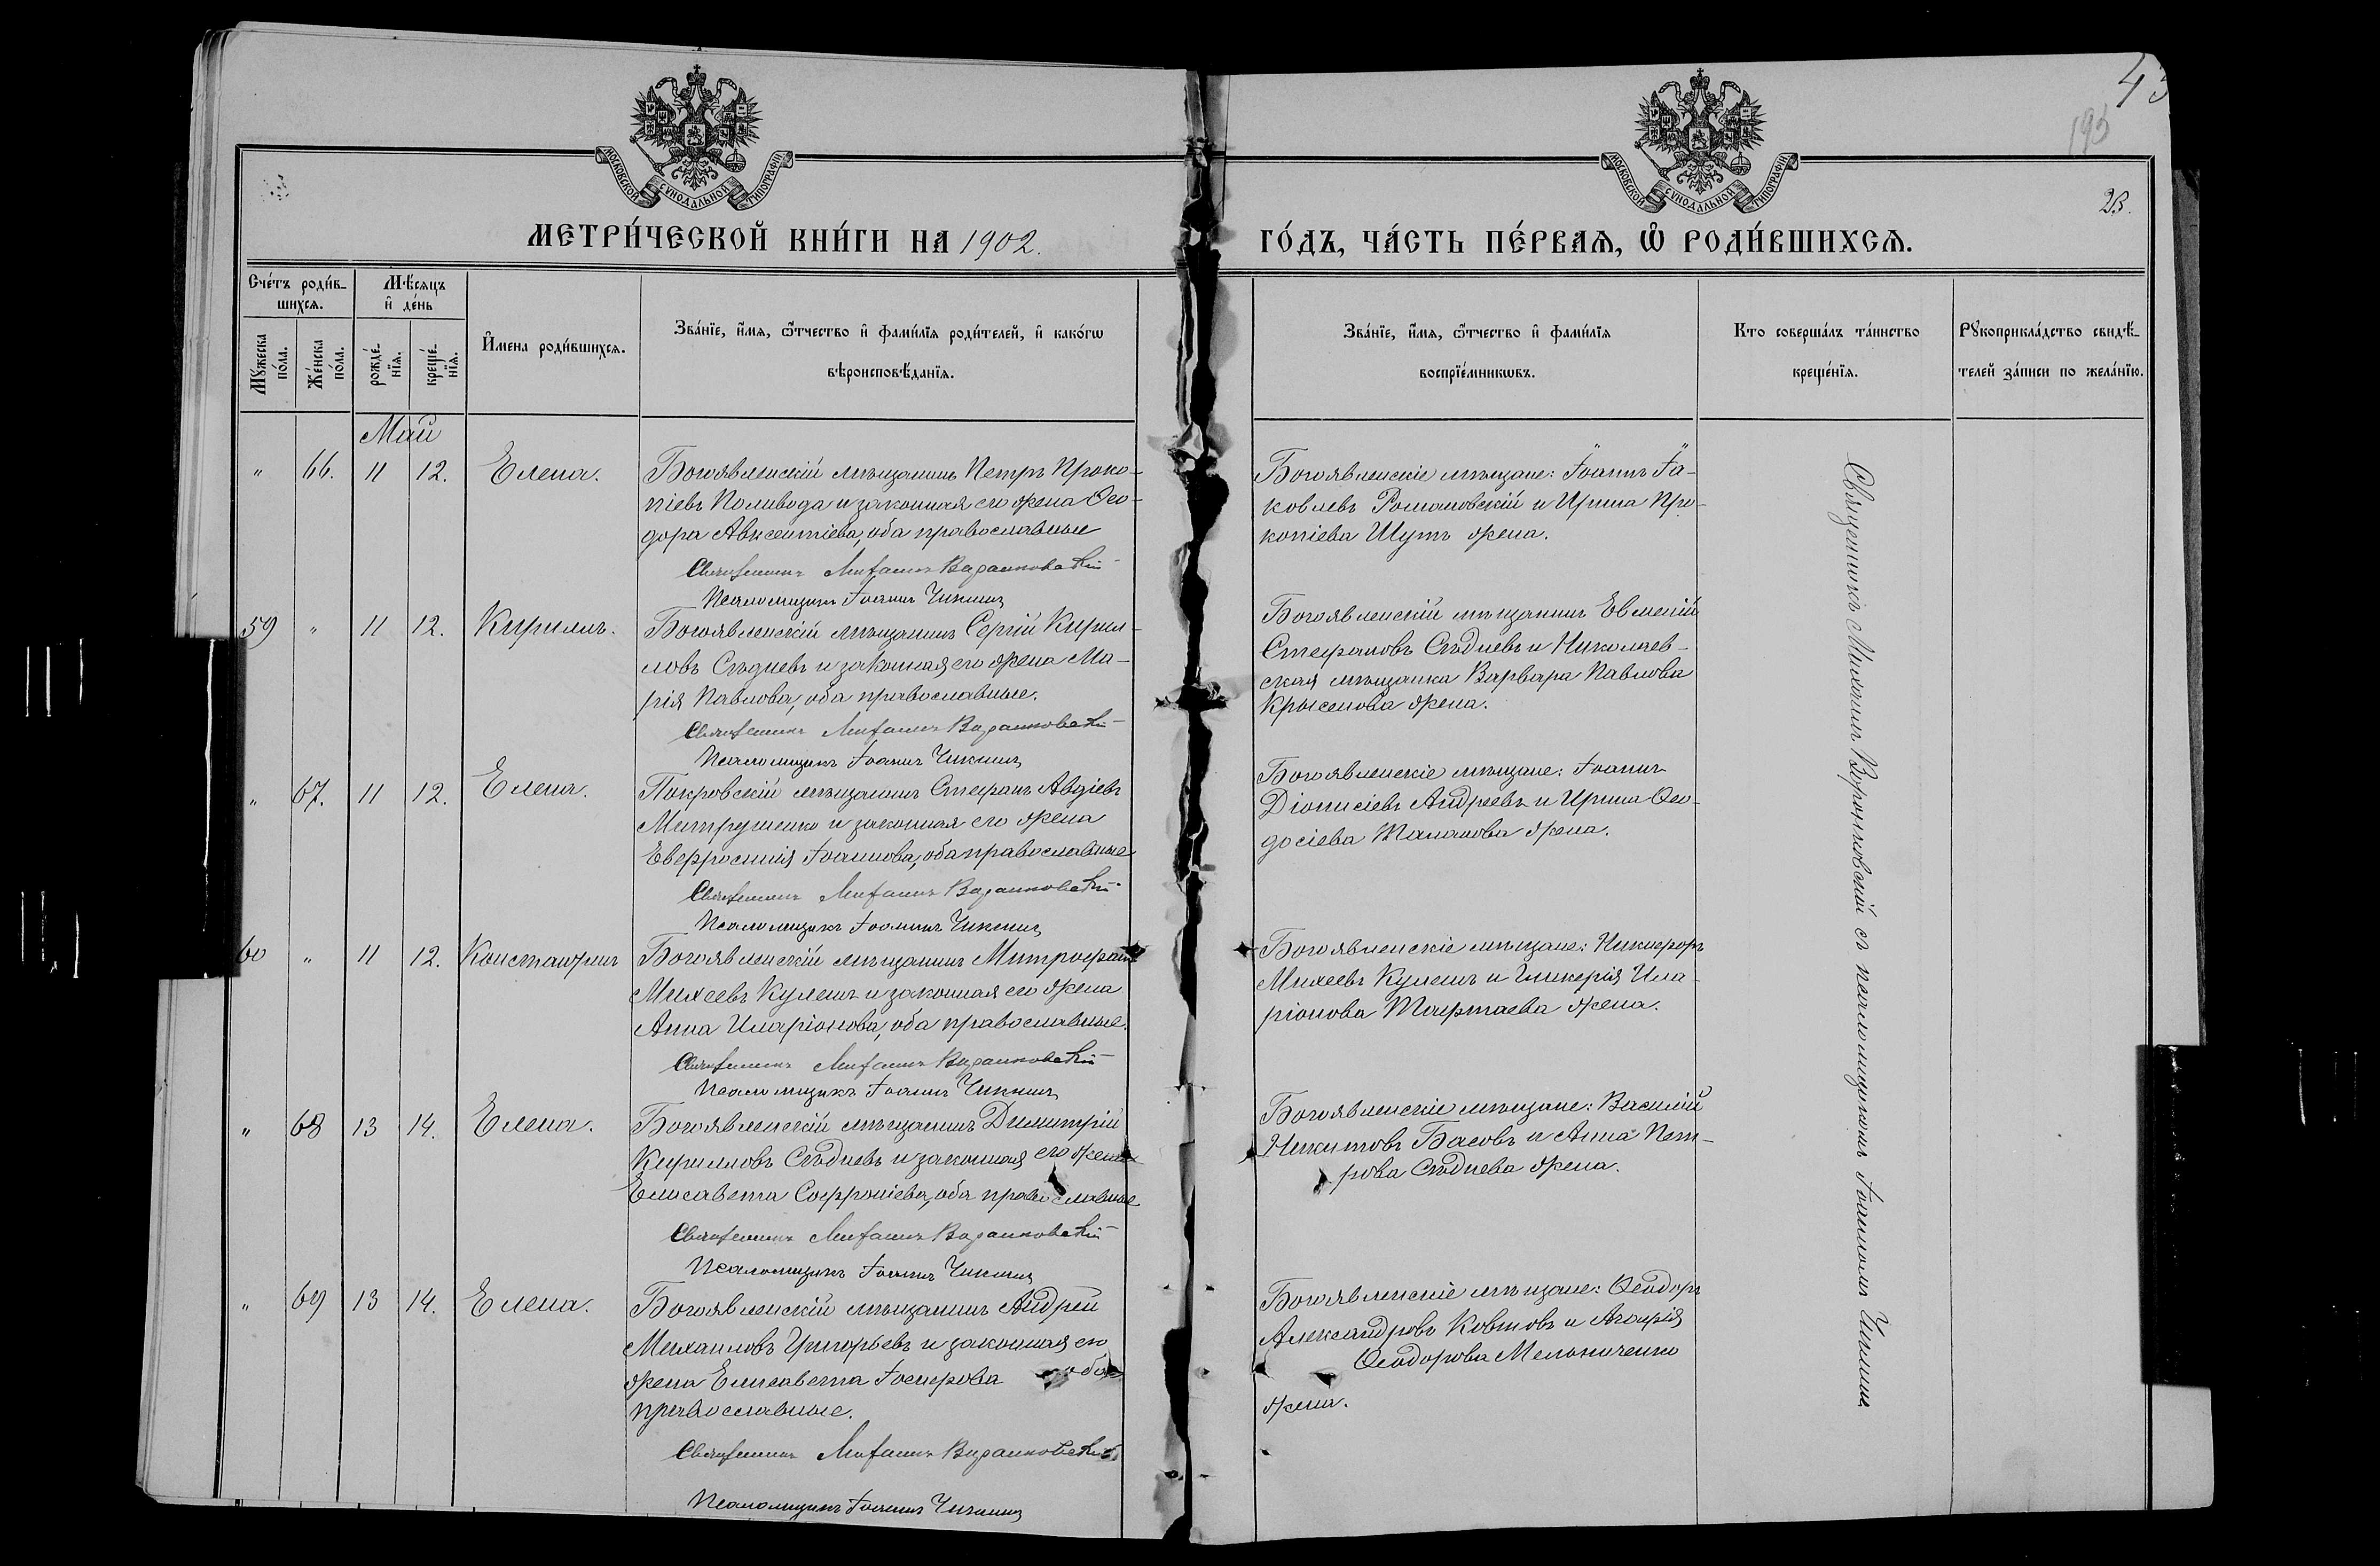 43
193
МОСКОВСКОЙ СѴНОДАЛЬНОЙ ТИПОГРАФІИ
МОСКОВСКОЙ СѴНОДАЛЬНОЙ ТИПОГРАФІИ
23.
МЕТРИ́ЧЕСКОЙ КНИ́ГИ НА 1902.
ГО́ДЪ, ЧА́СТЬ ПЕ́РВАѦ, Ѽ РОДИ́ВШИХСѦ.
Сче́тъ роди́в-
шихсѧ.
Мꙋ́жеска по́ла.
Же́нска по́ла.
Мѣ́сѧцъ
и҆ де́нь
рожде́-
нїѧ.
креще́-
нїѧ.
И҆мена роди́вшихсѧ.
Зва́нїе, и҆́мѧ, ѻ҆́тчество и҆ фами́лїѧ роди́телей, и҆ како́гѡ
вѣроисповѣ́данїѧ.
Зва́нїе, и҆́мѧ, ѻ҆́тчество и҆ фами́лїѧ
воспрїе́мникѡвъ.
Кто соверша́лъ та́инство
креще́нїѧ.
Рꙋкоприкла́дство свидѣ́-
телей за́писи по жела́нїю.
Май
" 66. 11 12. Елена.
Богоявленскій мѣщанинъ Петръ Проко-
піевъ Поливода и законная его жена Ѳео-
дора Авксентіева, оба православные
Священникъ Михаилъ Варанковскій
Псаломщикъ Іоаннъ Чикинъ
Богоявленскіе мѣщане: Іоаннъ Іа-
ковлевъ Романовскій и Ирина Про-
копіева Шутъ жена.
59 " 11 12. Кириллъ.
Богоявленскій мѣщанинъ Сергій Кирил-
ловъ Сѣдневъ и законная его жена Ма-
рія Павлова, оба православные.
Священникъ Михаилъ Варанковскій
Псаломщикъ Іоаннъ Чикинъ
Богоявленскій мѣщанинъ Евмений
Стефановъ Сѣдневъ и Николаев-
ская мѣщанка Варвара Павлова
жена.
" 67. 11 12. Елена.
Покровскій мѣщанинъ Стефанъ Авдіевъ
Митрушенко и законная его жена
Евфросинія Іоаннова, оба православные
Священникъ Михаилъ Варанковскій
Псаломщикъ Іоаннъ Чикинъ
Богоявленскіе мѣщане: Іоаннъ
Діонисіевъ Андреевъ и Ирина Ѳео-
досіева жена.
60 " 11 12. Константинъ
Богоявленскій мѣщанинъ Митрофанъ
Михеевъ Кулешъ и законная его жена
Анна Иларіонова, оба православные.
Священникъ Михаилъ Варанковскій
Псаломщикъ Іоаннъ Чикинъ
Богоявленскіе мѣщане: Никифоръ
Михеевъ Кулешъ и Гликерія Ила-
ріонова жена.
" 68 13 14. Елена.
Богоявленскій мѣщанинъ Димитрій
Кирилловъ Сѣдневъ и законная его жена
Елисавета Софроніева, оба православные
Священникъ Михаилъ Варанковскій
Псаломщикъ Іоаннъ Чикинъ
Богоявленскіе мѣщане: Василій
Никитовъ Басовъ и Анна Пет-
рова Сѣднева жена.
" 69 13 14. Елена.
Богоявленскій мѣщанинъ Андрей
Михаиловъ Григорьевъ и законная его
жена Елисавета Іосифова оба
православные.
Священникъ Михаилъ Варанковскій
Псаломщикъ Іоаннъ Чикинъ
Богоявленскіе мѣщане: Ѳеодоръ
Александровъ Ковтовъ и Агафія
Ѳеодорова Мельниченко
жена.
Священникъ Михаилъ Варанковскій съ псаломщикомъ Іоанномъ Чикинымъ